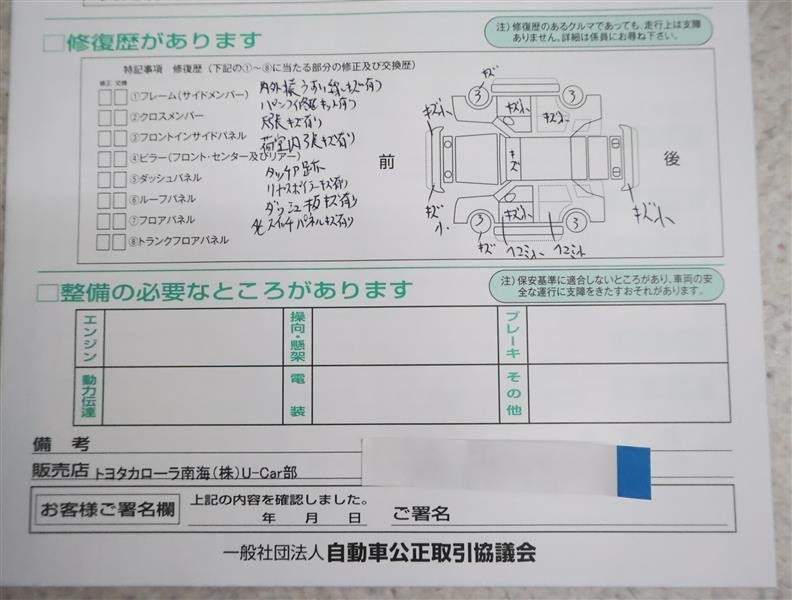 □修復歴があります
注）修復歴のあるクルマであっても、走行上は支障
ありません。詳細は係員にお尋ね下さい。
特記事項 修復歴（下記の①～⑧に当たる部分の修正及び交換歴）
修正 交換
①フレーム（サイドメンバー）
②クロスメンバー
③フロントインサイドパネル
④ピラー（フロント・センター及びリアー）
⑤ダッシュパネル
⑥ルーフパネル
⑦フロアパネル
⑧トランクフロアパネル
内外装うすい線キズ有り
パンク修理キット有り
荷室内張キズ有り
タッチアップ跡
リヤスポイラーキズ有り
ダッシュ板キズ有り
スイッチパネルキズ有り
前
後
キズ
3
3
キズ小
キズ小
キズ小
キズ小
キズ
キズ小
キズ小
キズ小
3
3
キズ
ヘコミ小
ヘコミ小
□整備の必要なところがあります
注）保安基準に適合しないところがあり、車両の安
全な運行に支障をきたすおそれがあります。
エンジン
操向・懸架
ブレーキ
動力伝達
電装
その他
備考
販売店 トヨタカローラ南海（株）U-Car部
お客様ご署名欄
上記の内容を確認しました。
年 月 日
ご署名
一般社団法人 自動車公正取引協議会